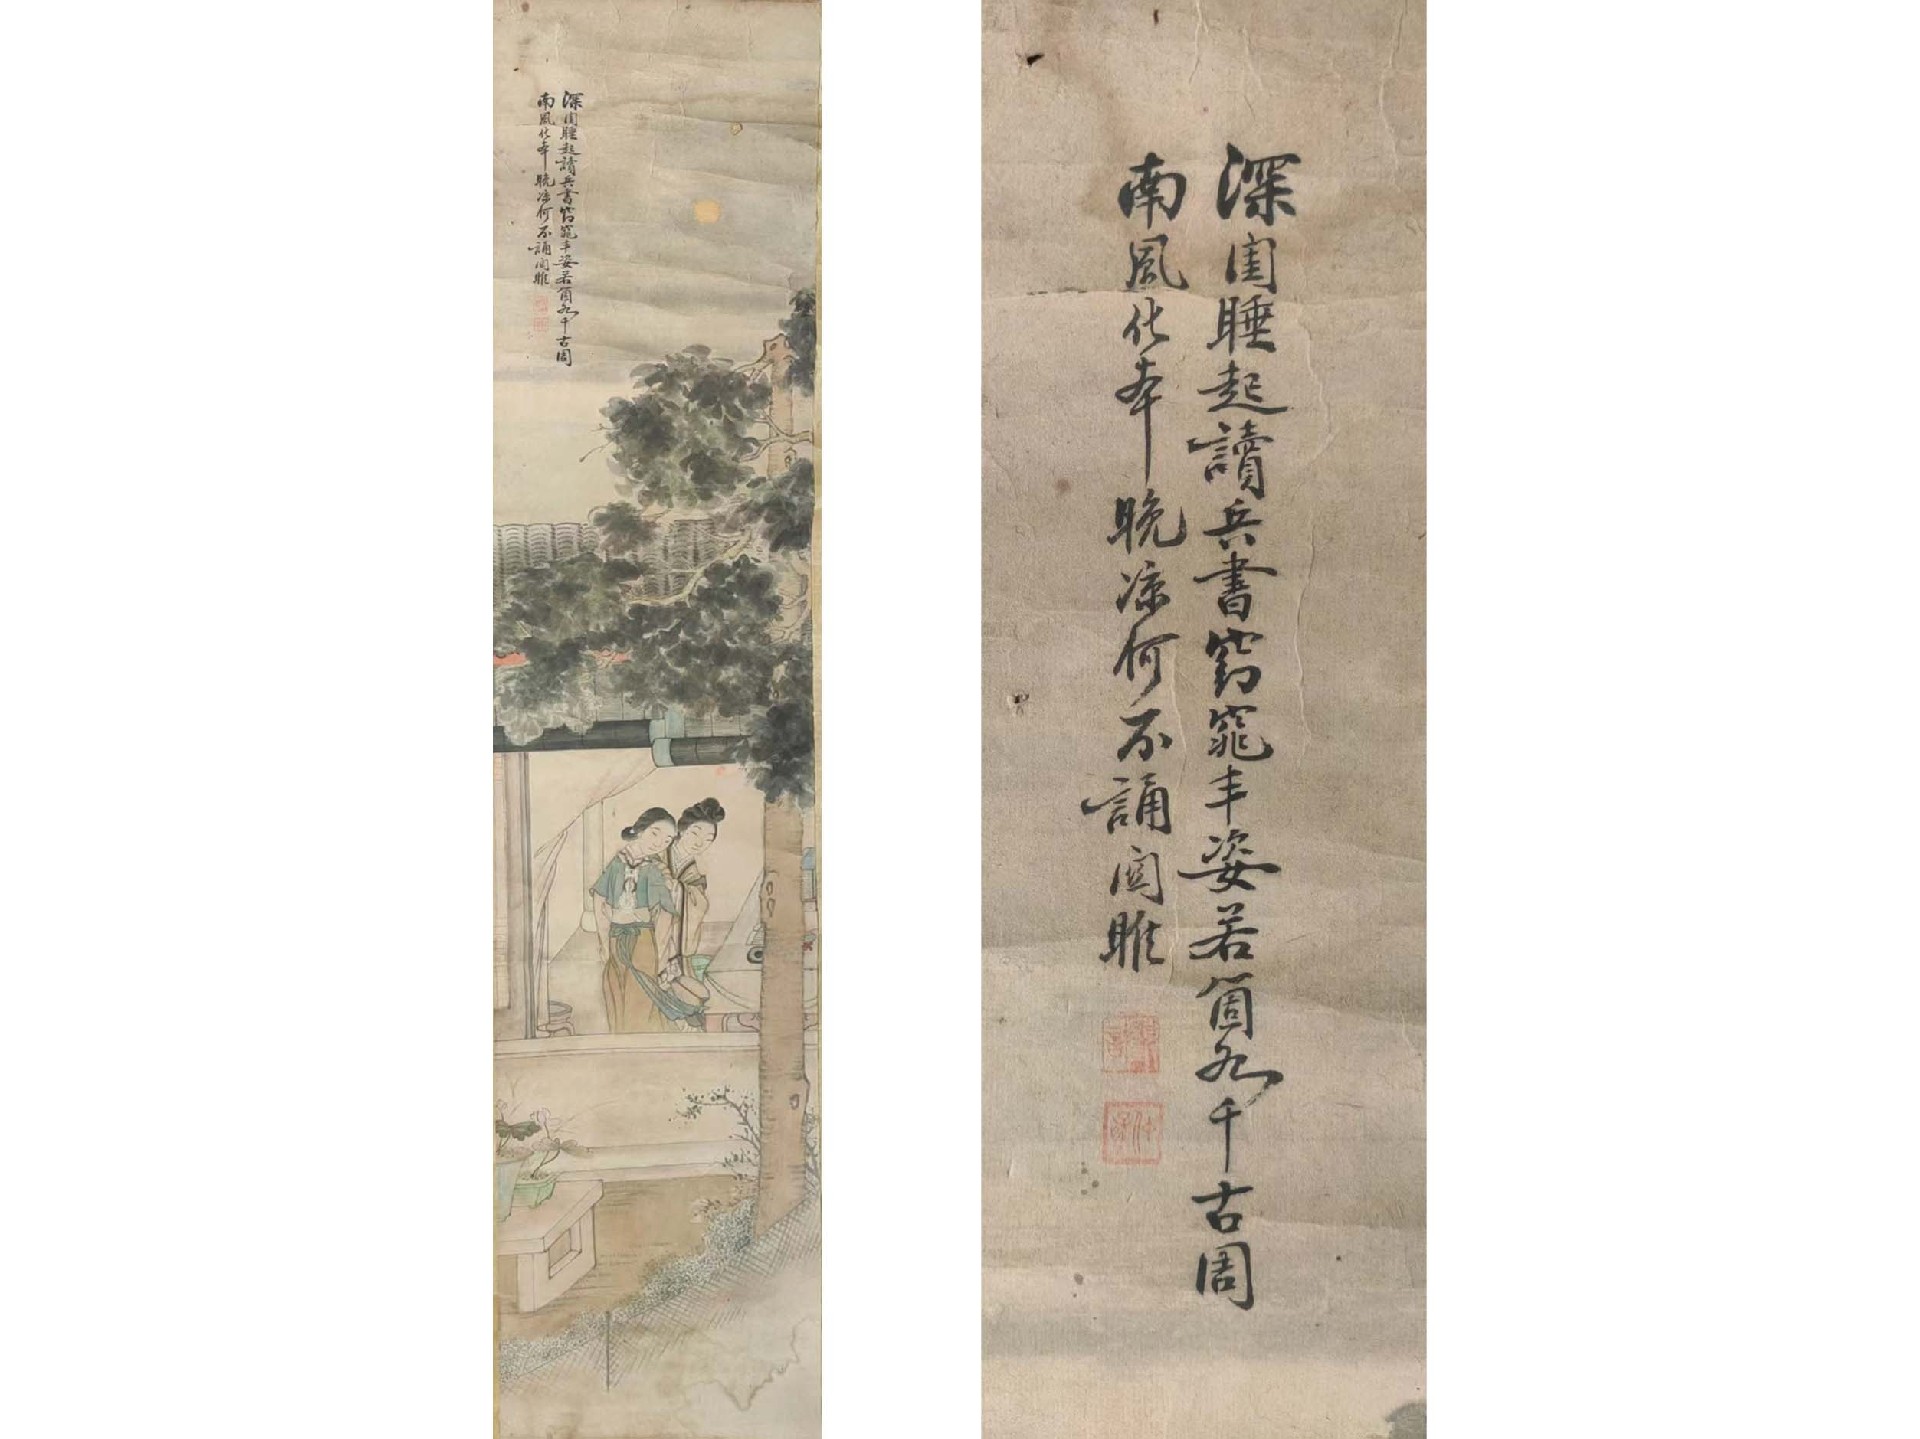 深閨睡起讀兵書窈窕丰姿若箇如千古周
南風化本晚凉何不誦関雎
深閨睡起讀兵書窈窕丰姿若箇如千古周
南風化本晚凉何不誦関雎